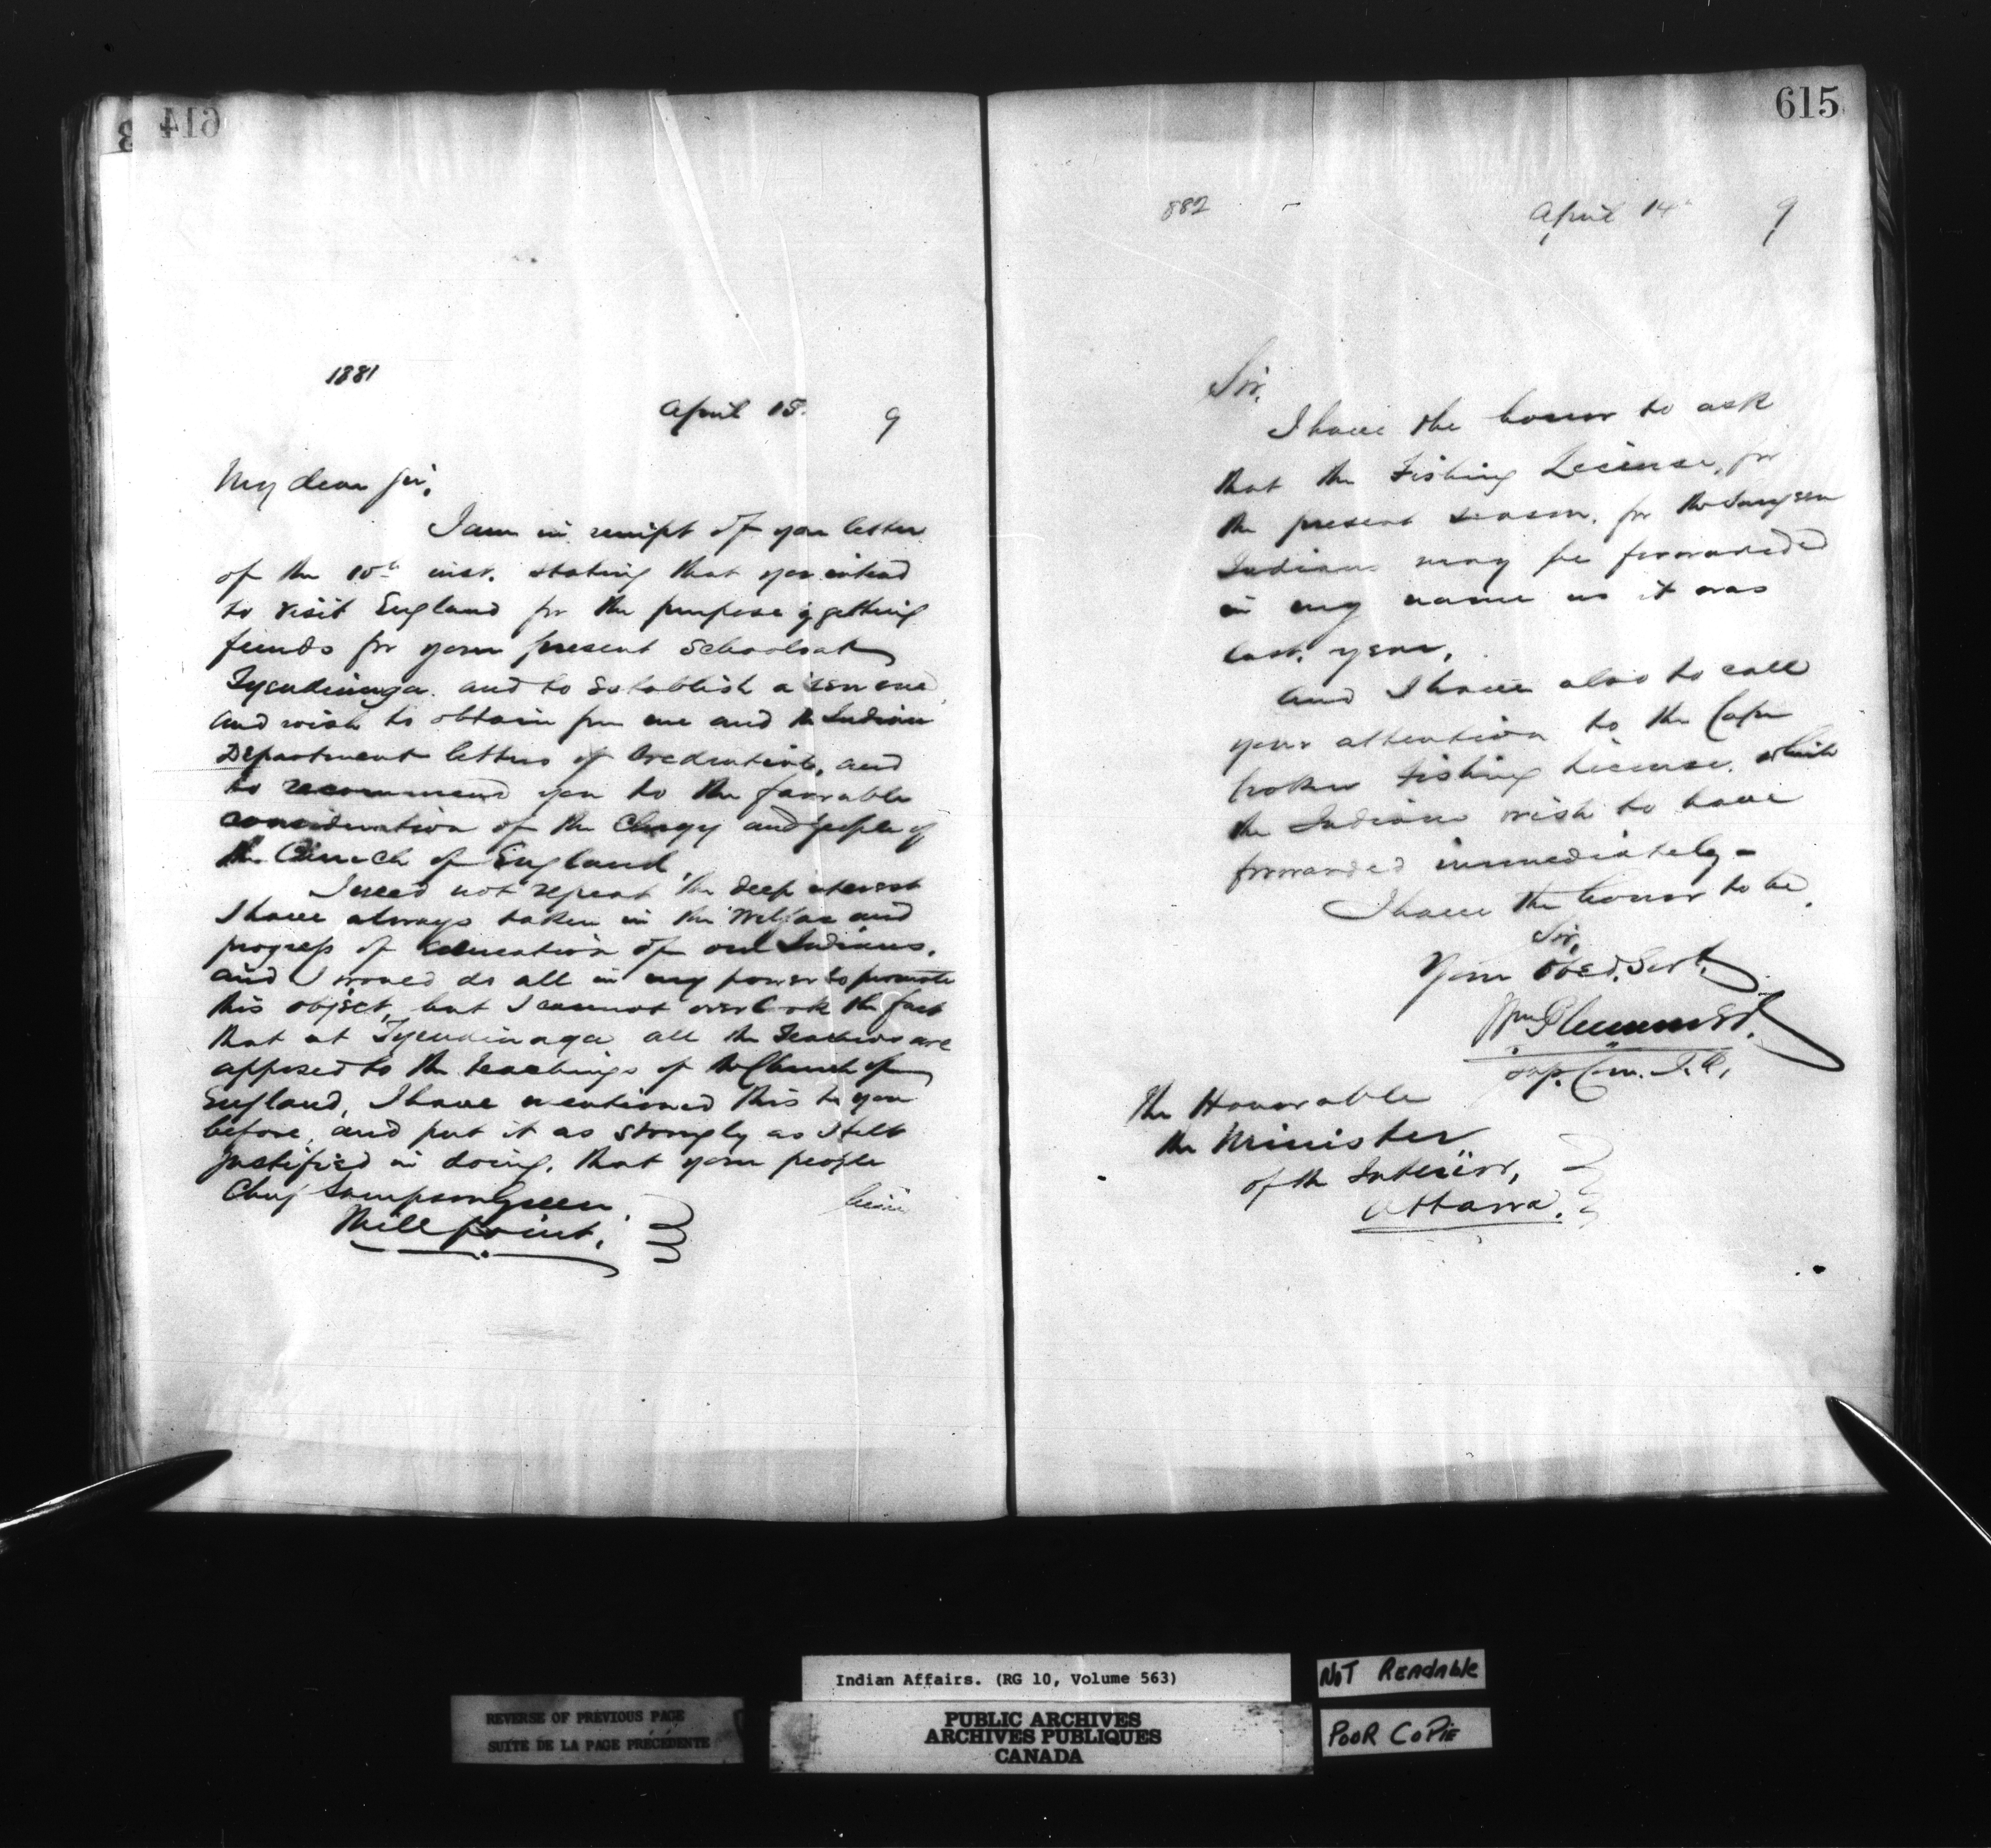 614
1881
April 15. 9
My dear Sir,
I am in receipt of your letter
of the 10th inst. stating that you intend
to visit England for the purpose of getting
funds for your present Schools at
Tyendinaga. and to establish a new one,
and wish to obtain from me and the Indian
Department letters of Credentials, and
to recommend you to the favorable
consideration of the Clergy and people of
the Church of England
I need not repeat the deep interest
I have always taken in the Welfare and
progress of education of our Indians.
and I would do all in my power to promote
this object, but I cannot overlook the fact
that at Tyendinaga all the Teachers are
opposed to the teachings of the Church of
England, I have mentioned this to you
before, and put it as strongly as I felt
justified in doing, that your people
Chief Sampson Green.
Mill Point.
615
882
April 14th 9
Sir,
I have the honor to ask
that the Fishing License, for
the present season, for the Saugeen
Indians may be forwarded
in my name as it was
last year,
And I have also to call
your attention to the Cape
Croker Fishing License. which
the Indians wish to have
forwarded immediately -
I have the honor to be,
Sir,
Your Obed. Servt.
Wm Plummer.
Sup. Com. I.A.
The Honorable
the Minister
of the Interior,
Ottawa.
Indian Affairs. (RG 10, Volume 563)
NOT READABLE
REVERSE OF PREVIOUS PAGE
SUITE DE LA PAGE PRÉCÉDENTE
PUBLIC ARCHIVES
ARCHIVES PUBLIQUES
CANADA
POOR COPIE